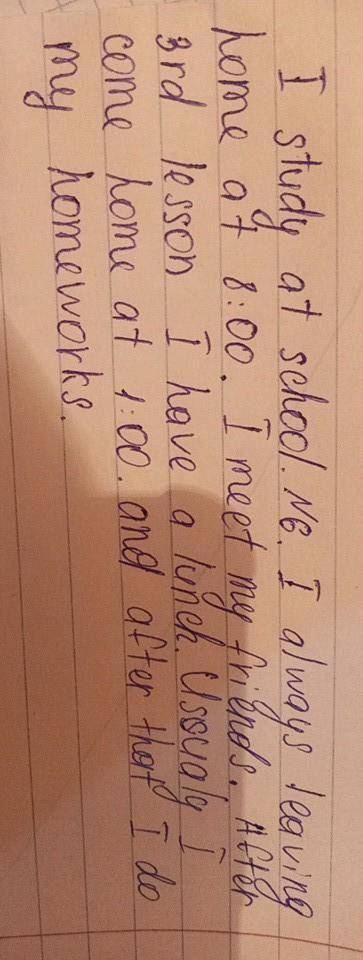 I study at school. №6. I always leaving
home at 8:00. I meet my friends. After
3rd lesson I have a lunch. Ussualy I
come home at 1:00. and after that I do
my homeworks.